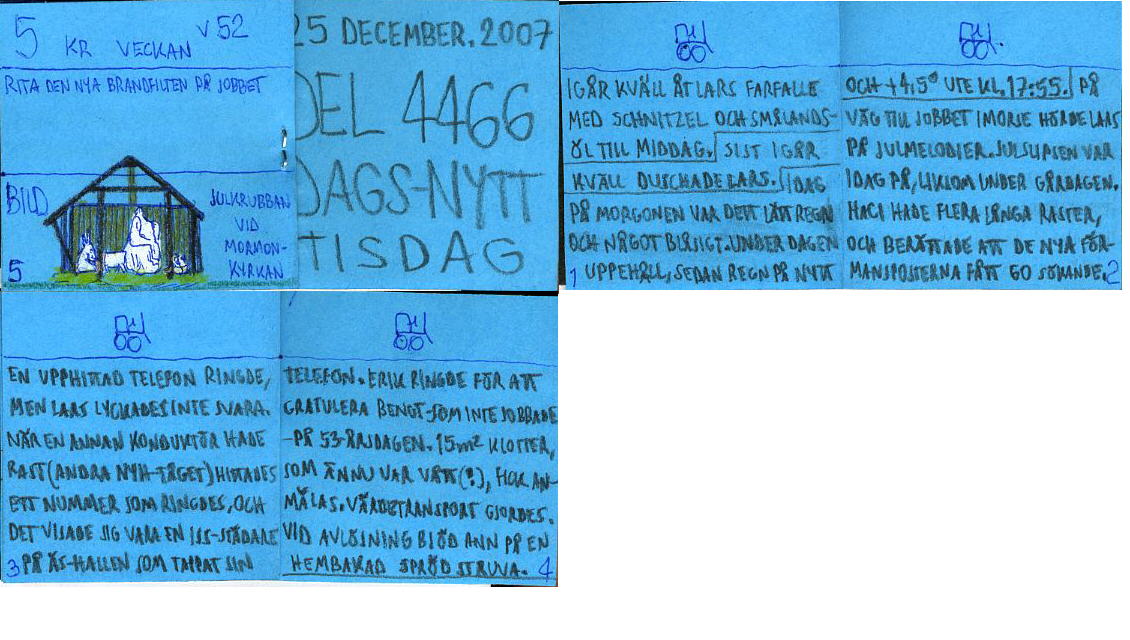 5 KR VECKAN V 52
RITA DEN NYA BRANDFILTEN PÅ JOBBET
BILD
5
JULKRUBBAN
VID
MORMON-
KYRKAN
25 DECEMBER. 2007
DEL 4466
DAGS-NYTT
TISDAG
IGÅR KVÄLL ÅT LARS FARFALLE
MED SCHNITZEL OCH SMÅLANDS-
ÖL TILL MIDDAG. SIST IGÅR
KVÄLL DUSCHADE LARS. IDAG
PÅ MORGONEN VAR DETT LÄTT REGN
OCH NÅGOT BLÅSIGT. UNDER DAGEN
1 UPPEHÅLL, SEDAN REGN PÅ NYTT
OCH +4,5° UTE KL. 17:55. PÅ
VÄG TILL JOBBET IMORSE HÖRDE LARS
PÅ JULMELODIER. JULSLIPSEN VAR
IDAG PÅ, LIKSOM UNDER GÅRDAGEN.
HACI HADE FLERA LÅNGA RASTER,
OCH BERÄTTADE ATT DE NYA FÖR-
MANSPOSTERNA FÅTT 60 SÖKANDE. 2
EN UPPHITTAD TELEFON RINGDE,
MEN LARS LYCKADES INTE SVARA.
NÄR EN ANNAN KONDUKTÖR HADE
RAST (ANDRA NYH-TÅGET) HITTADES
ETT NUMMER SOM RINGDES, OCH
DET VISADE SIG VARA EN ISS-STÄDARE
3 PÅ ÄS-HALLEN SOM TAPPAT SIN
TELEFON. ERIK RINGDE FÖR ATT
GRATULERA BENGT -SOM INTE JOBBADE
-PÅ 53-ÅRSDAGEN. 15m² KLOTTER,
SOM ÄNNU VAR VÅTT(!), FICK AN-
MÄLAS. VÄRDETRANSPORT GJORDES.
VID AVLÖSNING BJÖD ANN PÅ EN
HEMBAKAD SPRÖD STRUVA. 4